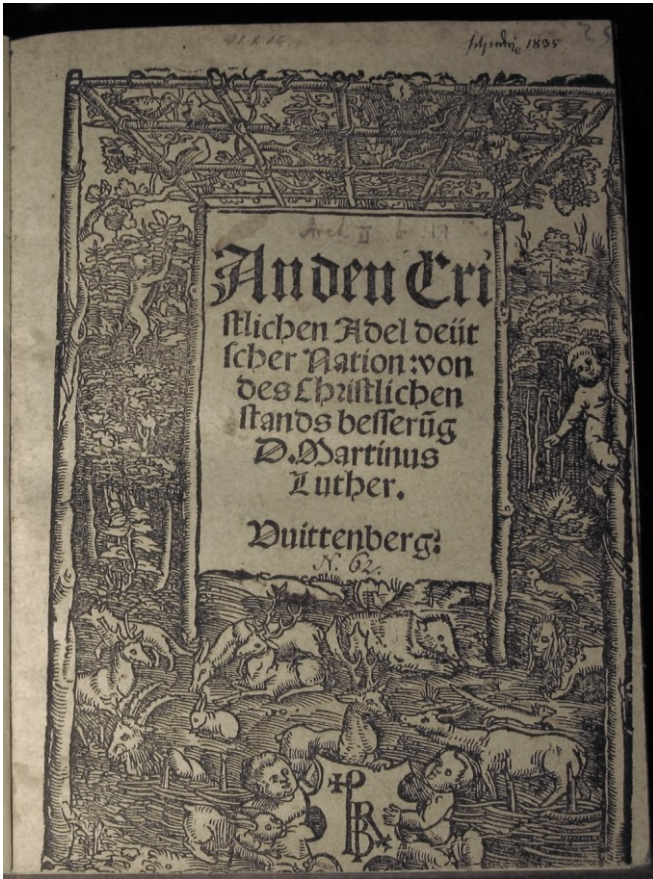 1835
Arch II b
An den Cri
stlichen Adel deüt
scher Nation: von
des Christlichen
stands besserũg
D. Martinus
Luther.
Vuittenberg.
N. 62.